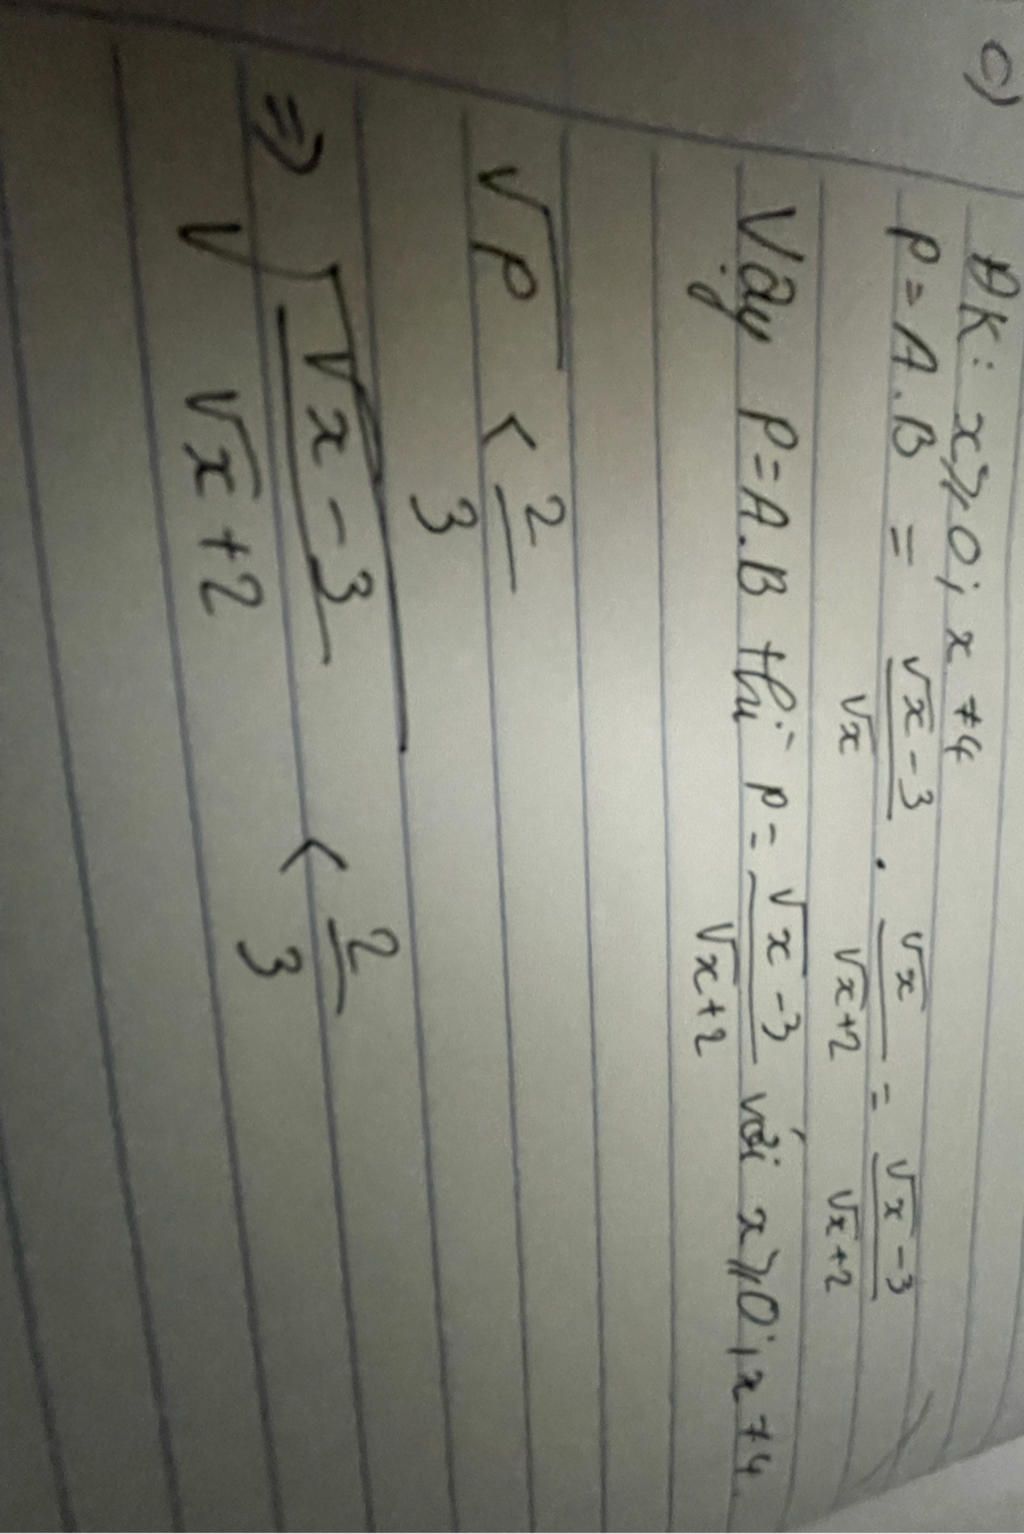 c)
ĐK: x ⩾ 0; x ≠ 4
P = A.B = (√x - 3)/√x . √x/(√x + 2) = (√x - 3)/(√x + 2)
Vậy P = A.B thì P = (√x - 3)/(√x + 2) với x ⩾ 0; x ≠ 4.
√P < 2/3
⇒ √((√x - 3)/(√x + 2)) < 2/3